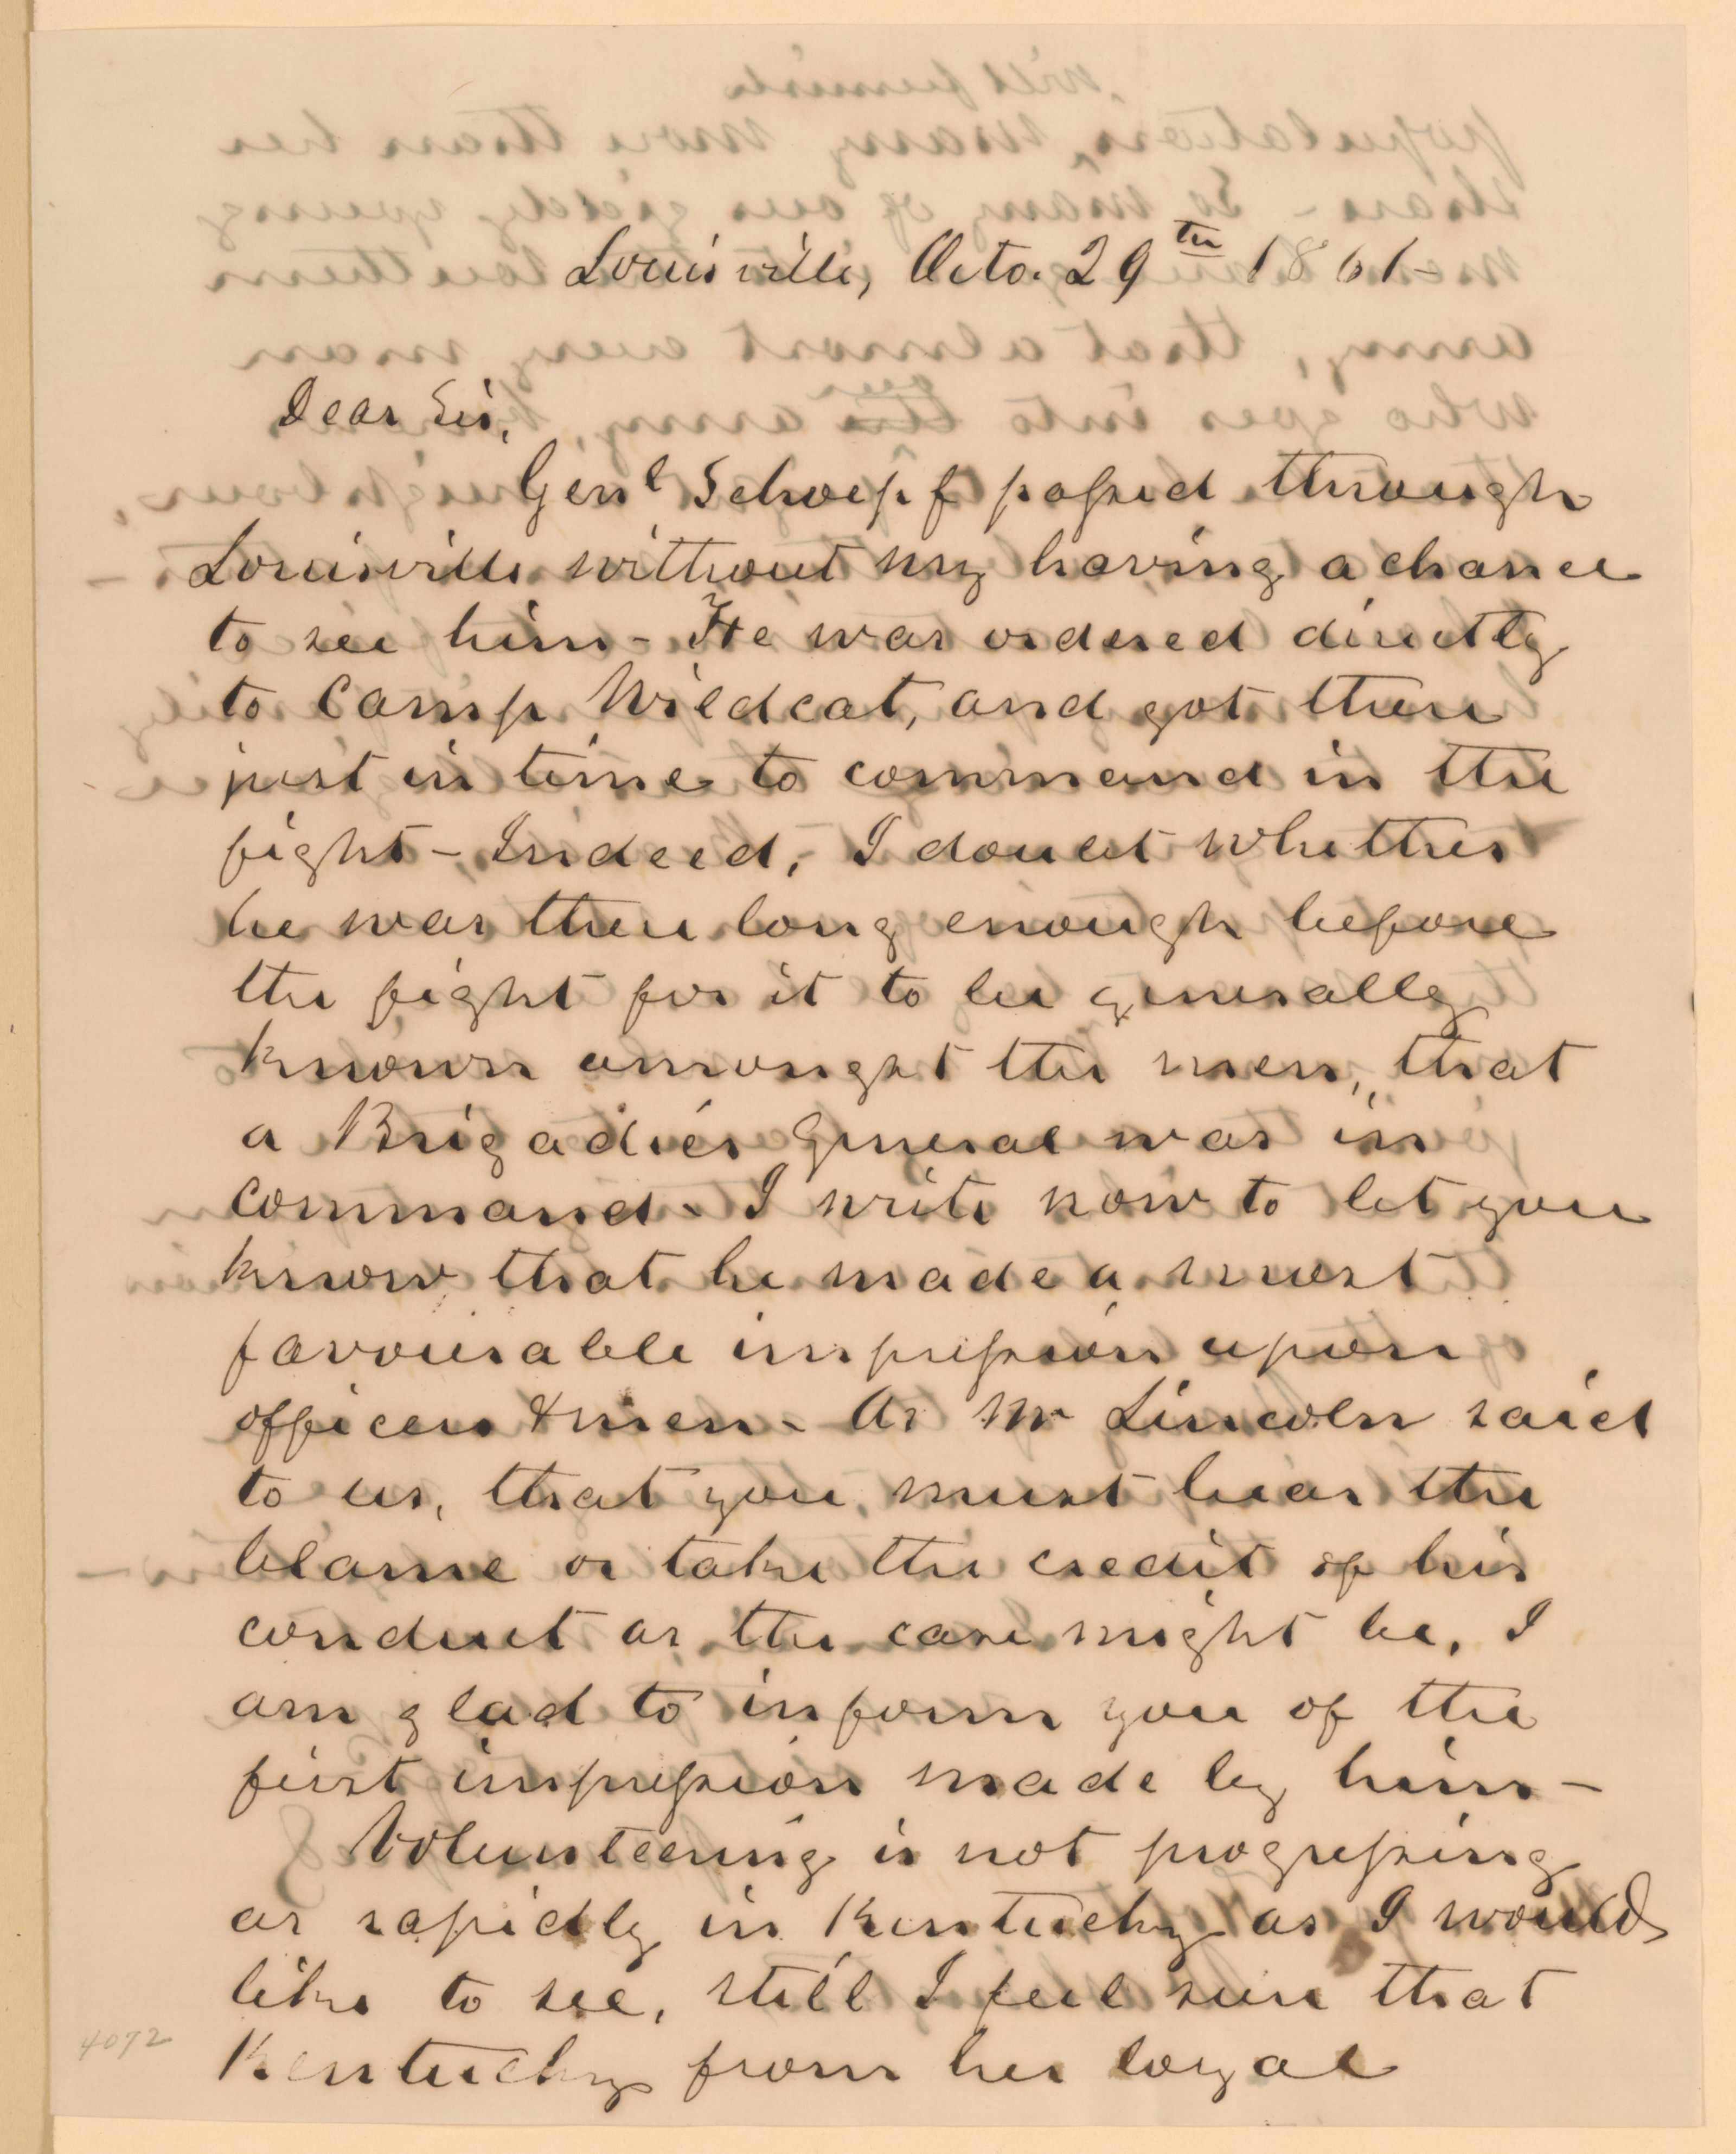 Louisville, Octo. 29th 1861-
Dear Sir,
Genl Schoepf passed through
Louisville without my having a chance
to see him- He was ordered directly
to Camp Wildcat, and got there
just in time to command in the
fight- Indeed, I doubt whether
he was there long enough before
the fight for it to be generally
known amongst the men, that
a Brigadier General was in
command- I write now to let you
know that he made a most
favourable impression upon
officers & men- As Mr Lincoln said
to us, that you must bear the
blame or take the credit of his
conduct as the case might be, I
am glad to inform you of the
first impression made by him-
Volunteering is not progressing
as rapidly in Kentucky as I would
like to see, still I feel sure that
Kentucky from her loyal
4072